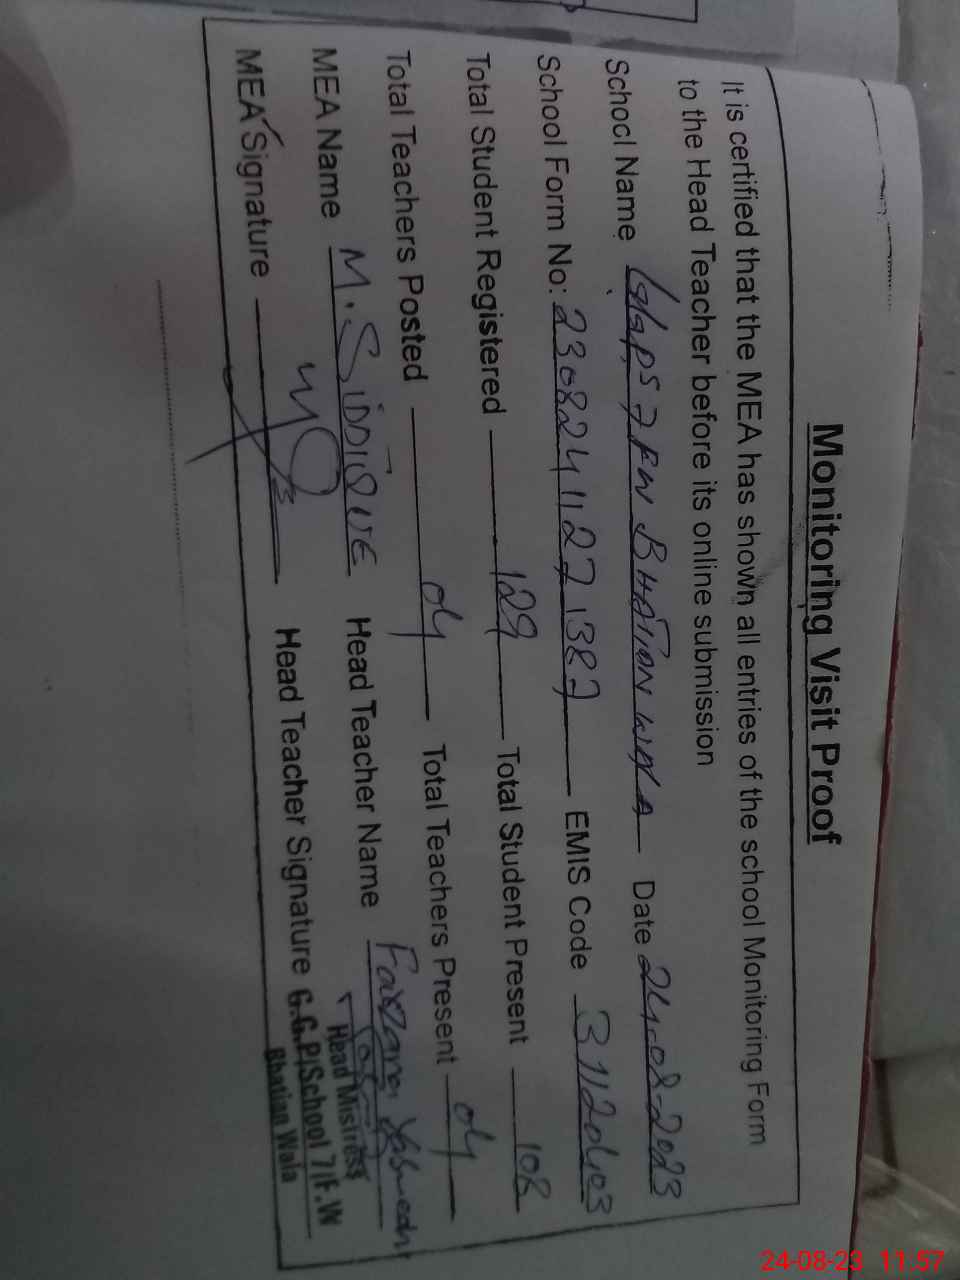 Monitoring Visit Proof
It is certified that the MEA has shown all entries of the school Monitoring Form
to the Head Teacher before its online submission
School Name GGPS 7 FW BHATIAN WALA Date 24-08-2023
School Form No: 23082411271387 EMIS Code 31120403
Total Student Registered 129 Total Student Present 108
Total Teachers Posted 04 Total Teachers Present 04
MEA Name M. SIDDIQUE Head Teacher Name Farzana Yasmeen
MEA Signature Head Teacher Signature
Head Mistress
G.G.P/School 7/F.W
Bhatian Wala
24-08-23 11:57